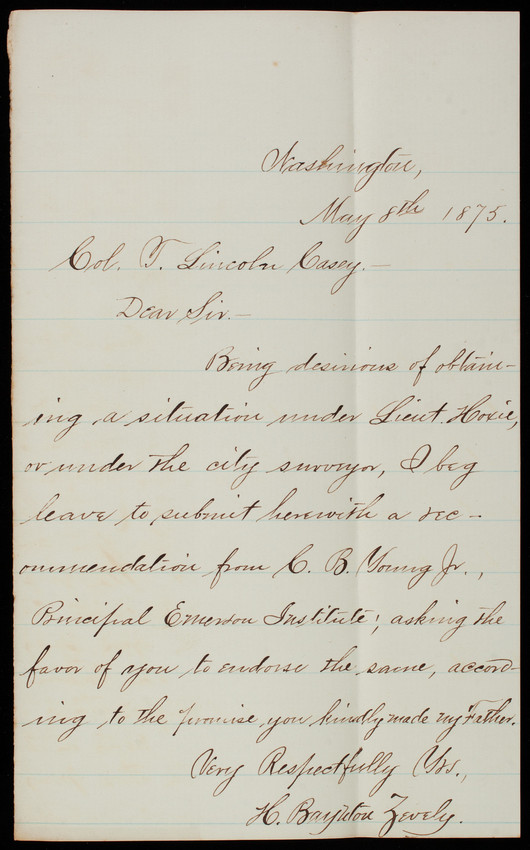 Washington,
May 8th 1875.
Col. T. Lincoln Casey.—
Dear Sir.—
Being desirious of obtain-
ing a situation under Lieut. Hoxie,
or under the city surveyor, I beg
leave to submit herewith a rec-
ommendation from C. B. Young Jr.,
Principal Emerson Institute; asking the
favor of you to endorse the same, accord-
ing to the promise you kindly made my Father.
Very Respectfully Yrs.,
H. Baynton Zevely.